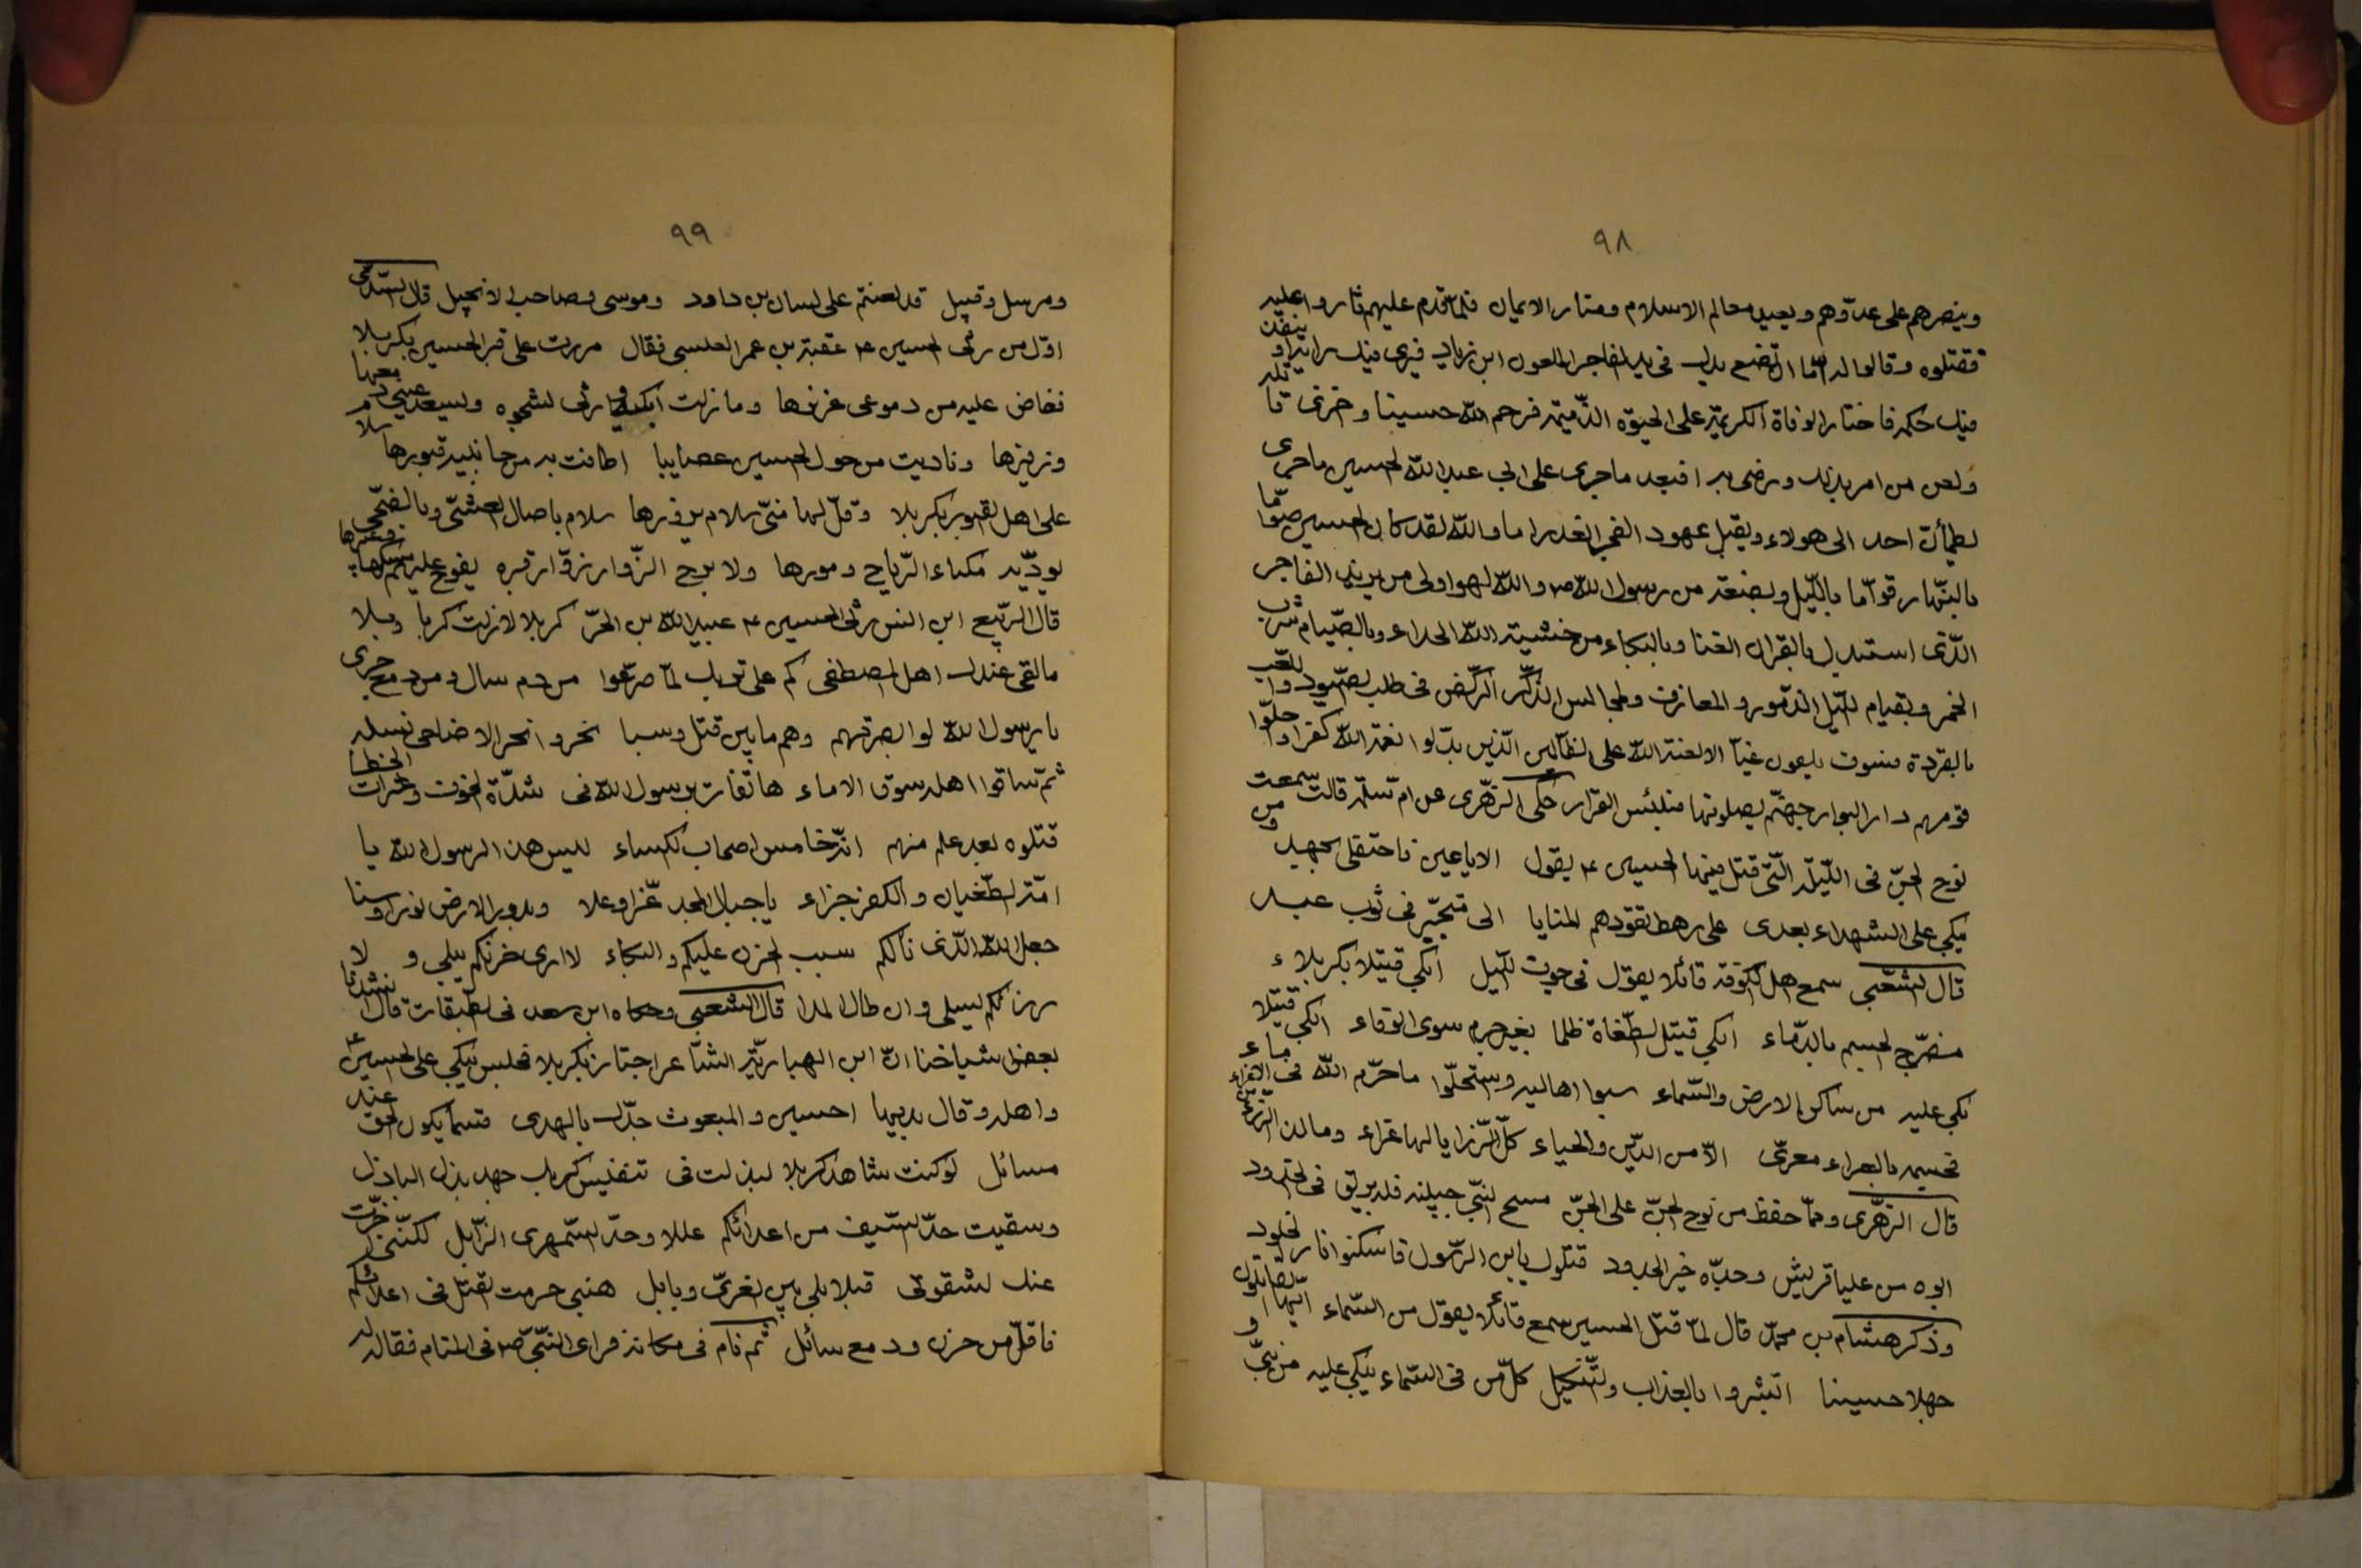 ٩٨
وينصرهم على عدوّهم ويعيد معالم الاسلام ومنار الايمان فلمّا قدم عليهم ثاروا عليه
فقتلوه وقالوا له امّا ان تضع يدك في يد الفاجر الملعون ابن زياد فيرى فيك رايه او ينفذ
فيك حكمه فاختار الوفاة الكريمة على الحيوة الذّميمة فرحم الله حسينا واخزى قاتله
ولعن من امر بذلك ورضى به افبعد ماجرى على ابي عبد الله الحسين ماجرى
يطمأنّ احد الى هولاء ويقبل عهود الفجر الغدر اما والله لقد كان الحسين صوّاما
بالنّهار قوّاما بالليل ولبضعة من رسول الله ص والله لهو اولى من يزيد الفاجر
الّذى استبدل بالقران الغنا وبالبكاء من خشية الله الحداء وبالصّيام شرب
الخمر وبقيام الليل الزمور والمعازف ولمجالس الذّكر الرّكض في طلب الصّيود واللّعب
بالقردة فسوف يلقون غيّا الا لعنة الله على الظالمين الّذين بدّلوا نعمة الله كفرا واحلّوا
قومهم دار البوار جهنّم يصلونها فلبئس القرار حكى الزهّرى عن ام سلمه قالت سمعت
نوح الجنّ في اللّيلة الّتي قتل فيها الحسين ع يقول الا يا عين فاحتفلى بجهد ومن
يبكى على الشهداء بعدى على رهط تقودهم المنايا الى متجبّر في ثوب عبد
قال الشّعبى سمع اهل الكوفة قائلا يقول في جوف الليل ابكى قتيلا بكربلاء
مضرّج الجسم بالدّماء ابكى قتيل الطّغاة ظلما بغير جرم سوى الوفاء ابكى قتيلا
بكى عليه من ساكن الارض والسّماء سبوا اهاليه واستحلّوا ما حرّم الله في الاماء
فجسمه بالعراء معرّى الّا من الدّين والحياء كلّ الرّزايا لها عزاء وما لذا الرّزء من عزاء
قال الزهّرى وممّا حفظ من نوح الجنّ على الجنّ مسح النبيّ جبينه فله بريق في الخدود
ابوه من عليا قريش وجدّه خير الجدود قتلوك يابن الرّسول فاسكنوا نار الخلود
وذكر هشام بن محمّد قال لمّا قتل الحسين سمع قائلا يقول من السّماء ايّها القاتلون
جهلا حسينا ابشروا بالعذاب والتّنكيل كلّ من في السّماء يبكى عليه من نبىّ و
٩٩
ومرسل وقبيل قد لعنتم على لسان بن داود وموسى وصاحب الانجيل قال السّدّى
اوّل من رثى الحسين ع عقبة بن عمر العبسى فقال مررت على قبر الحسين بكربلا
ففاض عليه من دموعى غزيرها وما زلت ابكيه وارثى لشجوه ويسعد عينى دمعها
وزفيرها وناديت من حول الحسين عصايبا اطافت به من جانبيه قبورها سلام
على اهل القبور بكربلا وقلّ لها منّى سلام يزورها سلام باصال العشّى وبالضّحى
يودّيه نكباء الرّياح ومورها ولا برح الزّوار زوّار قبره يفوح عليهم مسكها وعبيرها
قال الرّبيع ابن انس رثى الحسين ع عبيد الله بن الحرّ كربلا لا زلت كربا وبلا
ما لقى عندك اهل المصطفى كم على تربك لمّا صرّعوا من دم سال ومن دمع جرى
يا رسول الله لو ابصرتهم وهم ما بين قتل وسبا نحروا نحر الاضاحى نسله
ثمّ ساقوا اهله سوق الاماء هاتفات برسول الله في شدّة الخوف وعثرات الخطا
قتلوه بعد علم منهم انّه خامس اصحاب الكساء ليس هذا لرسول الله يا
امّة الطّغيان والكفر جزاء يا جبال المجد عزّا وعلا وبدور الارض نورا وسنا
جعل الله الّذى نالكم سبب الحزن عليكم والبكاء لا ارى حزنكم يبلى ولا
رزئكم يسلى وان طال المدا قال الشعبى وحكاه ابن سعد في الطّبقات قال انشدنا
بعض مشياخنا انّ ابن الهباريّة الشّاعر اجتاز بكربلا فجلس يبكى على الحسين ع
واهله وقال بديها احسين والمبعوث جدّك بالهدى قسما يكون الحق عنه
مسائل لو كنت شاهد كربلا لبذلت في تنفيس كربك جهد بذل الباذل
وسقيت حدّ السّيف من اعدائكم عللا وحدّ السّمهرى الذّابل لكنّنى اخّرت
عنك لشقوتى فبلابلى بين الغرىّ وبابل هبنى حرمت القتل في اعدائكم
فاقلّ من حزن ودمع سائل ثم نام في مكانه فراى النّبىّ ص في المنام فقال له